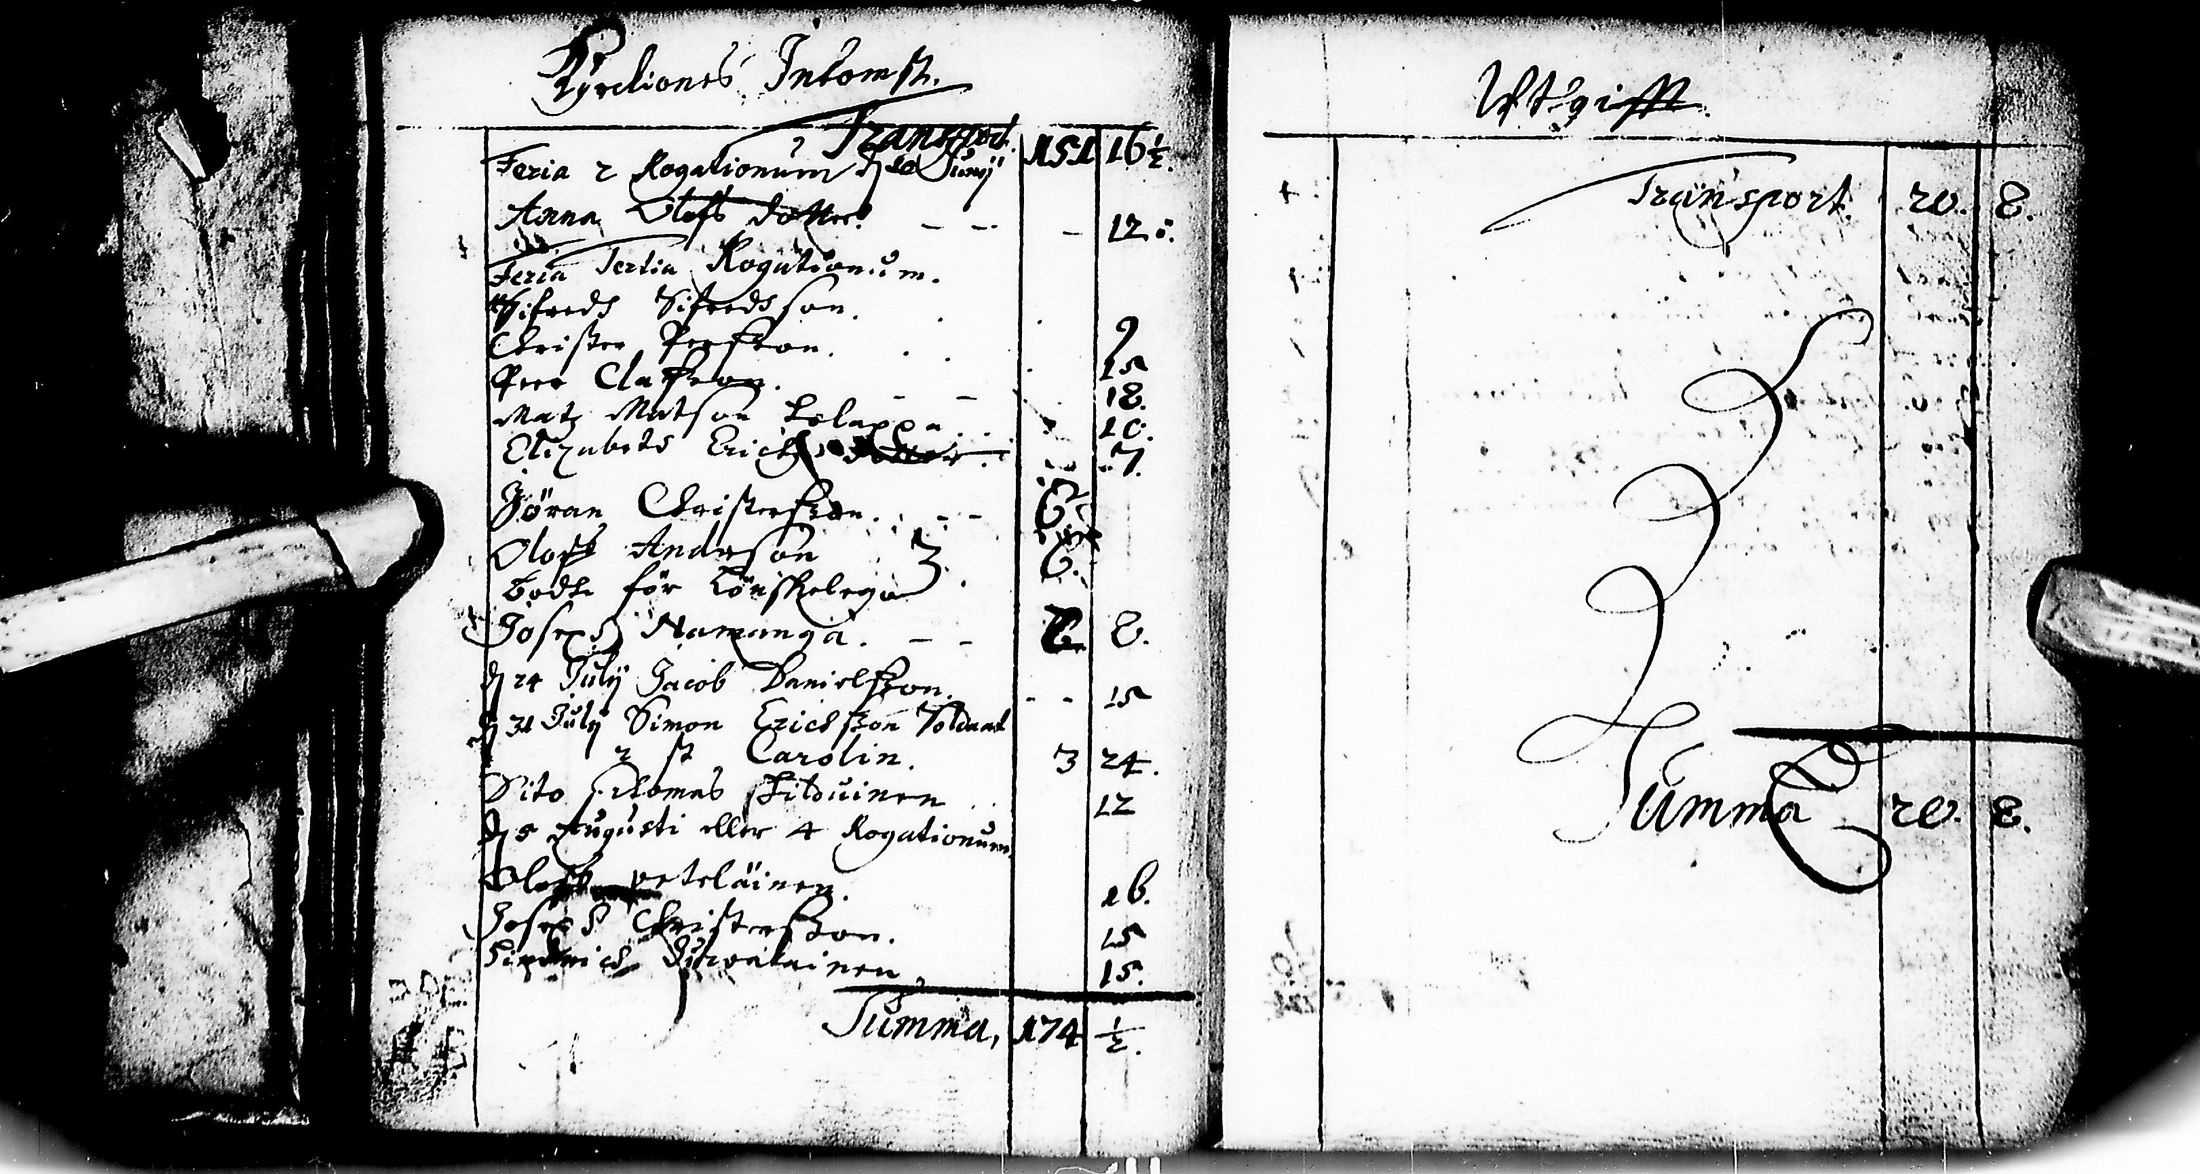 Kyrckiones Inkomst.
Transport. 151 16 ½.
Feria 2 Rogationum d 10 Junij
Anna Olofs dotter. - - - - 12 ö.
Feria Tertia Rogationum.
Sifredh Sifredsson. 9
Christer Persson. 15
Peer Classon. 18.
Matz Matson 10.
Elizabeth Erichs dotter. 7.
Jöran Christersson. - - 6
Oloff Anderson 3. 6.
bödt för Lönskelega
Joseph Namanga. - - 6 8.
d 24 Julij Jacob Danielsson. - - 15
d 31 Julij Simon Erichsson Soldaat
2 st Carolin. 3 24.
Dito Thomas 12
d 5 Augusti eller 4 Rogationum
Oloff peteläinen. 16.
Joseph Christersson. 15
Hindrich 15.
Summa, 174 ½.
Uthgifft.
Transport. 20. 8.
Summa 20. 8.